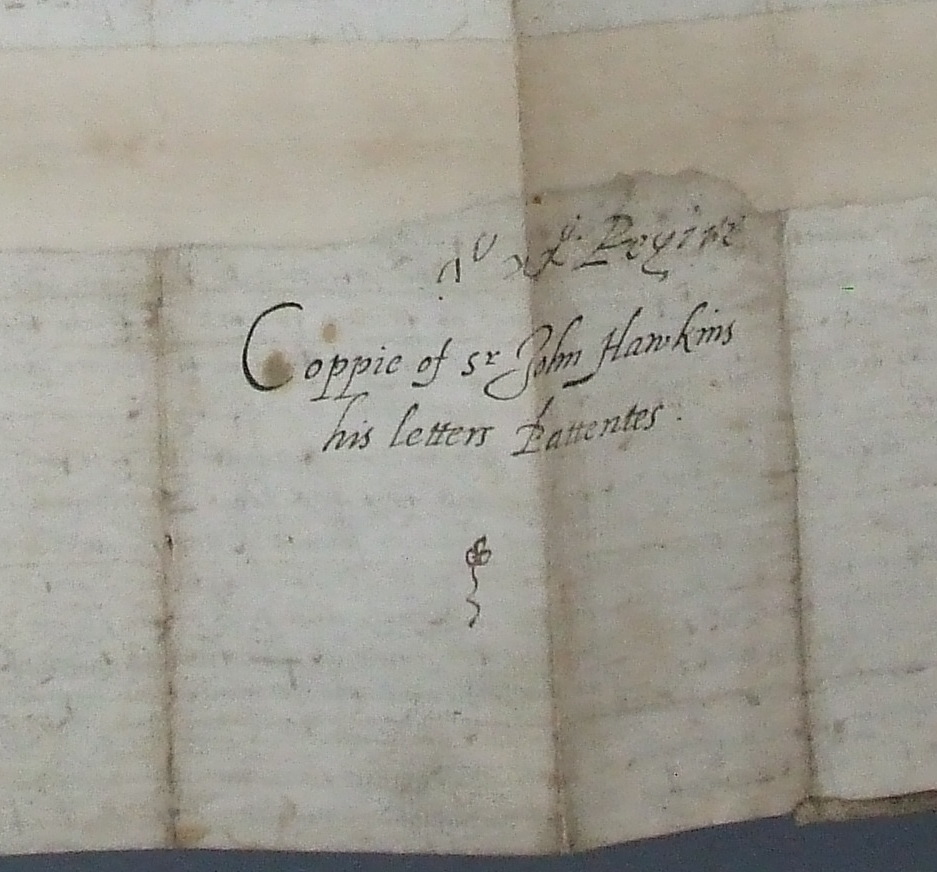 Regine
Coppie of sr John Hawkins
his letters Pattentes.